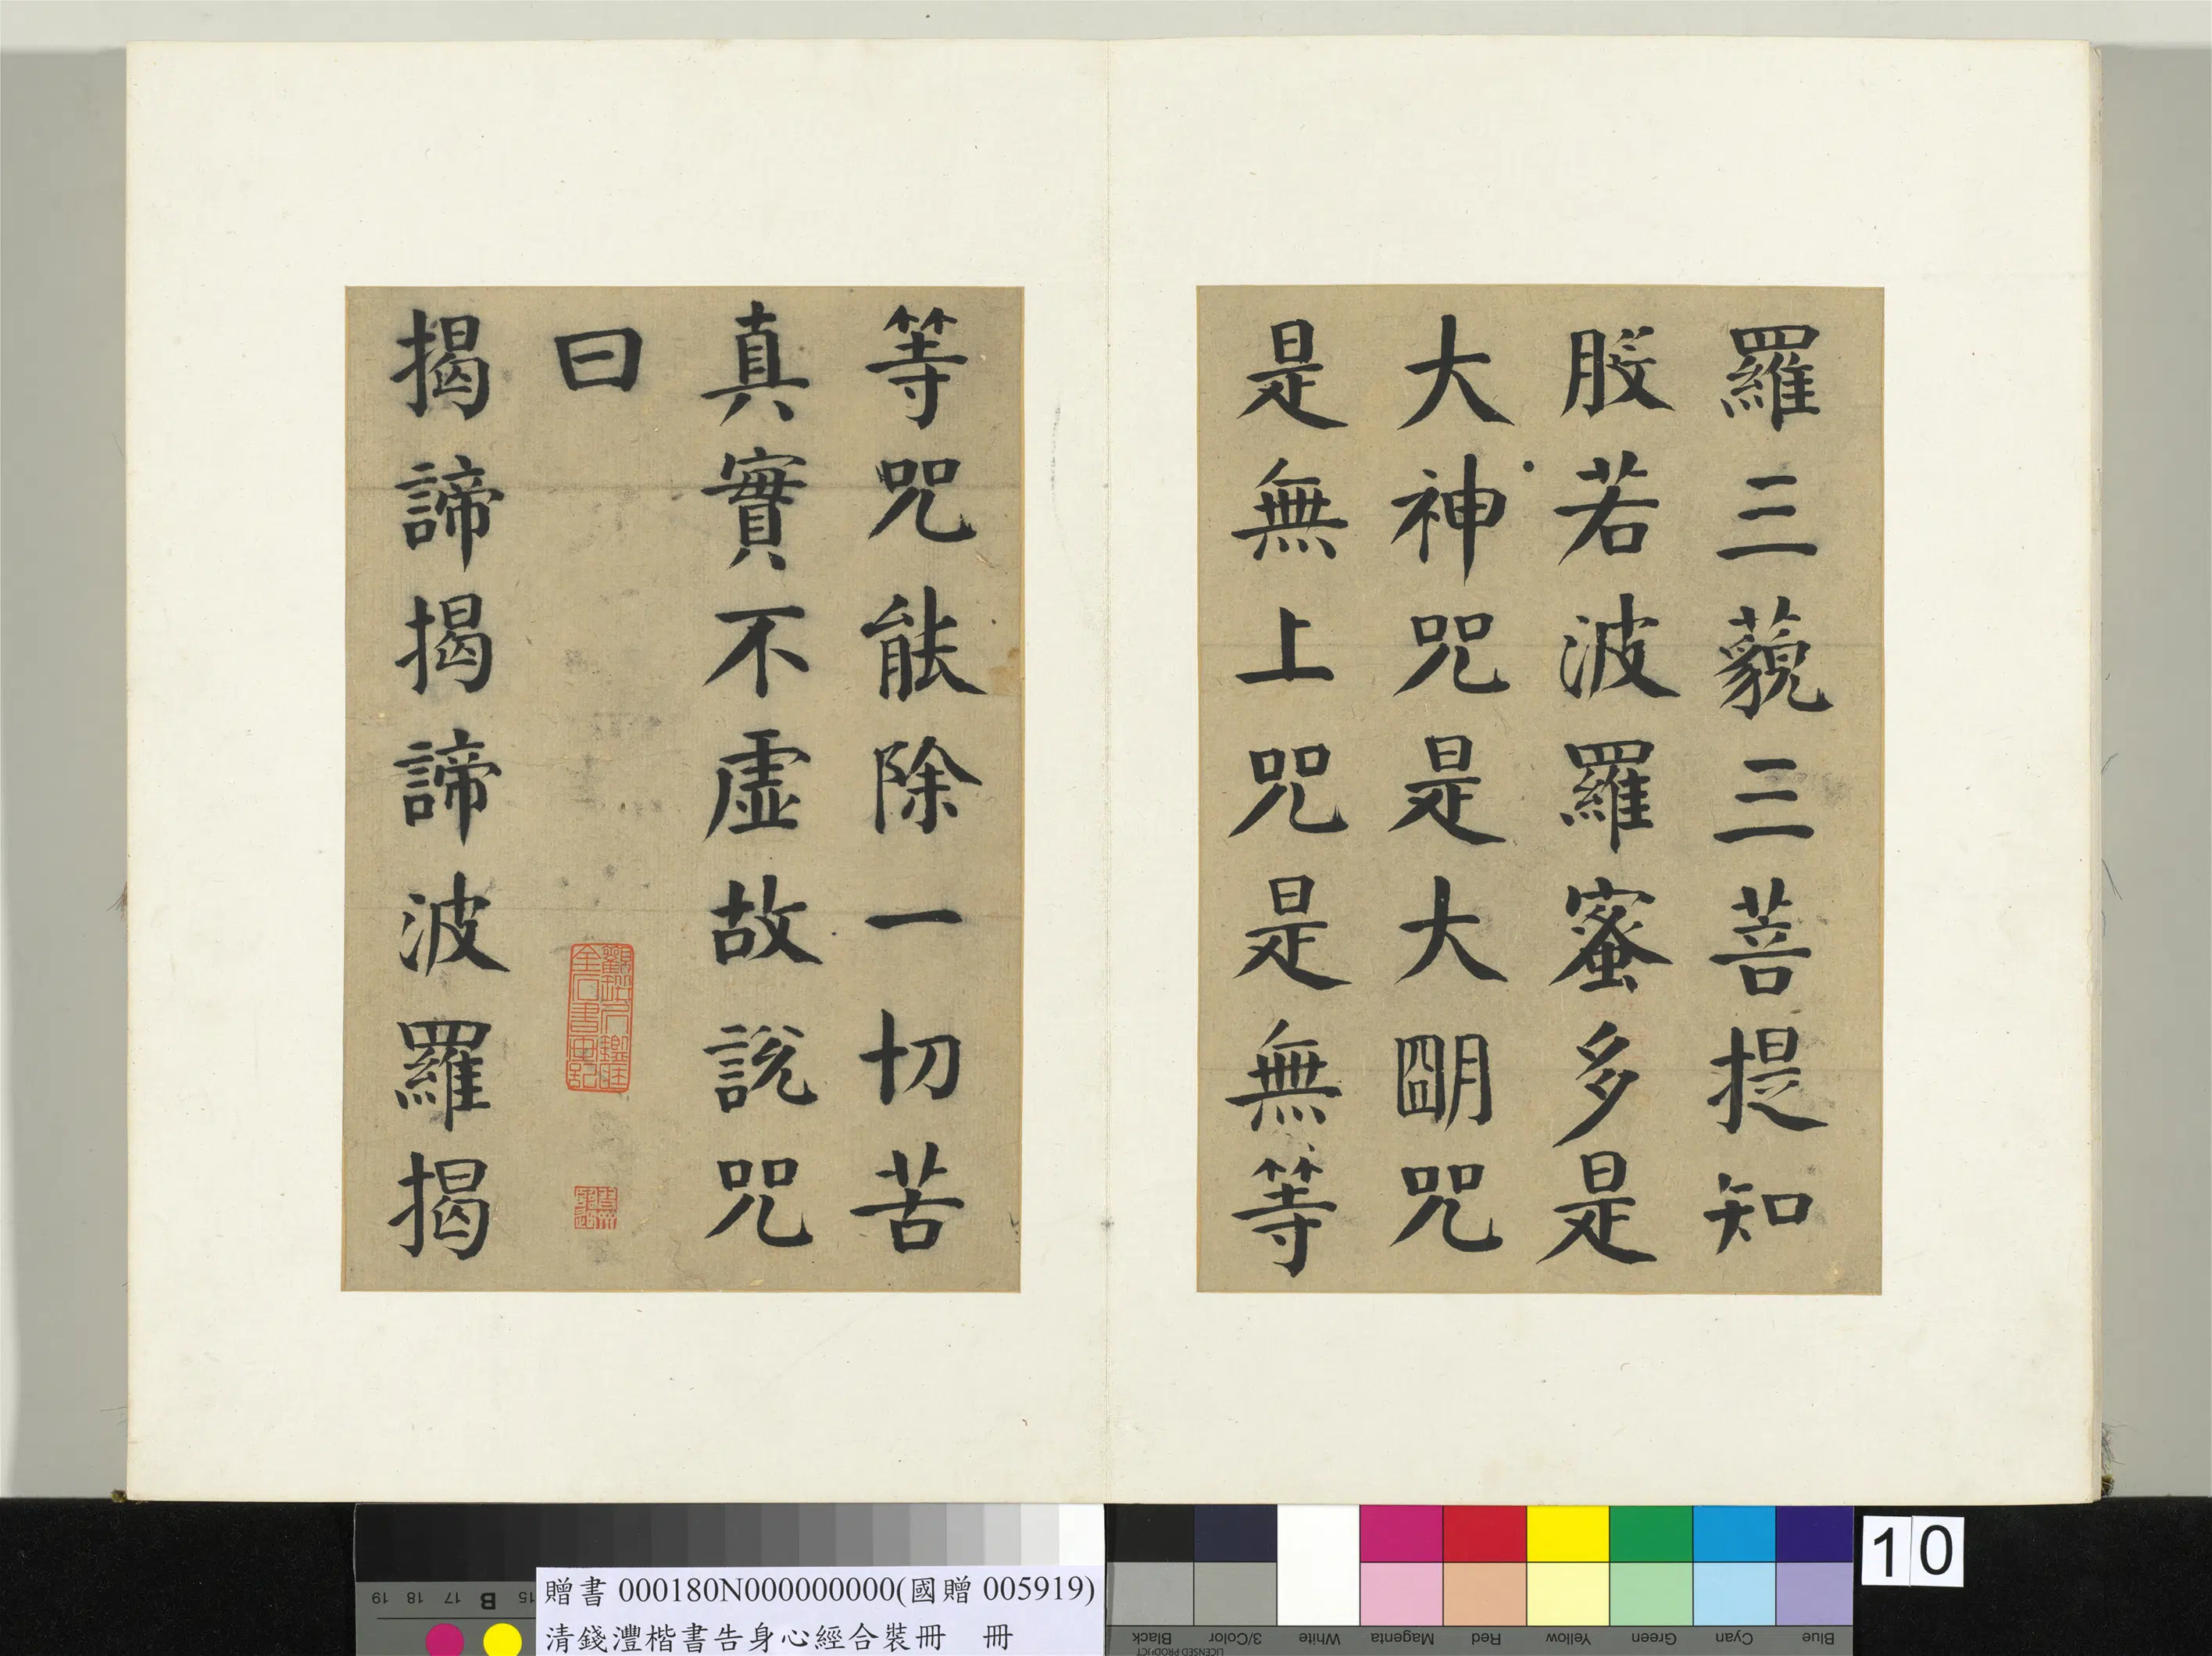 羅三藐三菩提知
般若波羅蜜多是
大神咒是大朙咒
是無上咒是無等
等咒能除一切苦
真實不虛故說咒
曰
揭諦揭諦波羅揭
贈書 000180N000000000(國贈 005919)
清錢灃楷書告身心經合裝冊 冊
10
19 18 17 B 15
Black 3/Color White Magenta Red Yellow Green Cyan Blue
LICENSED PRODUCT